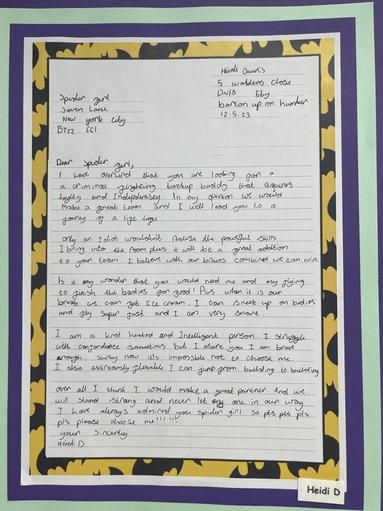 Heidi Davis
5 waldens close
DN18 6by
barton up on humber
12.5.23
Spider gurl
Seven Lane
New york city
DT22 661
Dear Spider gurl,
I have overheard that you are looking for a
a criminal fighting backup buddy that requires
loylty and Independensy. In our opinion we would
make a great team and I will lead you to a
journey of a life time.
only an Idiot wouldn't notise the powerfull skills
I bring into the room plus it will be a great addition
to your team. I believe with our brains combined we can win.
Is it any wonder that you would need me and my flying
to finish the baddies for good! Plus when it is our
break we can get Ice cream. I can sneak up on bodies
and fly super fast and I am very smart.
I am a kind hearted and Intelligent person. I struggle
with confordance sometimes but I asure you I am brave
enough. Surely now it's impossible not to choose me.
I also extremly flexable I can jump from building to building
over all I think I would make a great partener. And we
will stand strong and never let any one in our way
I have always admired you spider girl so pls pls pls
pls please choose me!!!!!!
your Sincerley
Heidi D
Heidi D